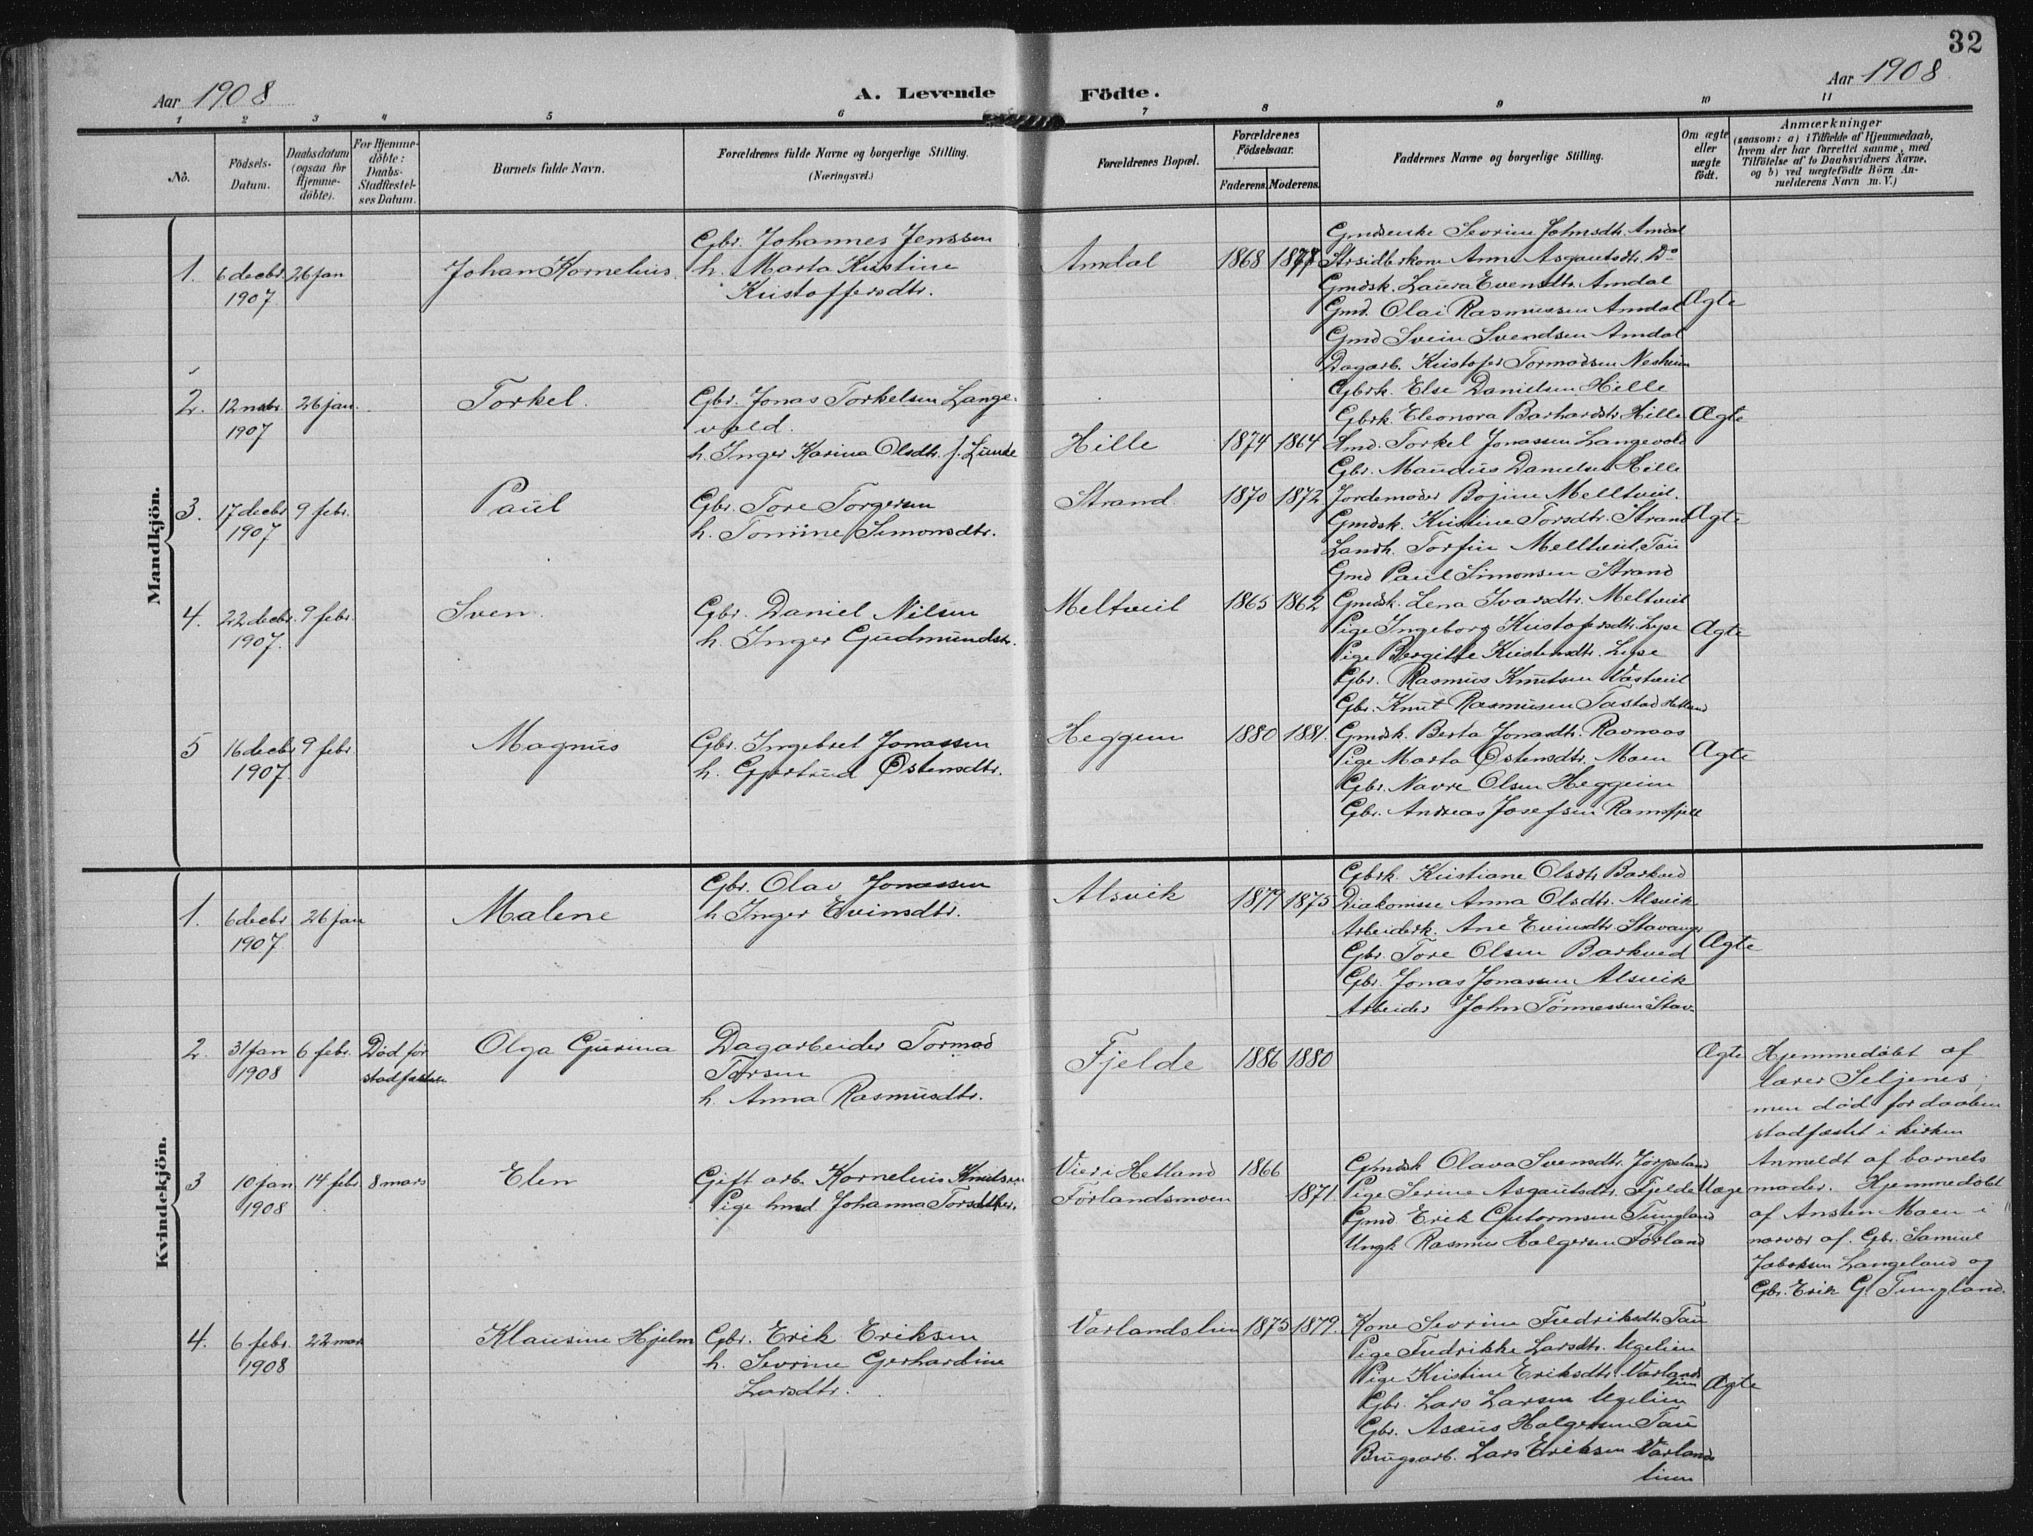 32
Aar 1908
A. Levende Födte.
Aar 1908
1 2 3 4 5 6 7 8 9 10 11
No.
Födsels-Datum.
Daabsdatum (ogsaa for Hjemme-döbte).
For Hjemme-döbte: Daabs-Stadfæstel-ses Datum.
Barnets fulde Navn.
Forældrenes fulde Navne og borgerlige Stilling.
(Næringsvei.)
Forældrenes Bopæl.
Forældrenes Födselsaar.
Faderens. Moderens.
Faddernes Navne og borgerlige Stilling.
Om ægte eller uægte födt.
Anmærkninger
(saasom: a) i Tilfælde af Hjemmedaab,
hvem der har forrettet samme, med
Tilföielse af to Daabsvidners Navne,
og b) ved uægtefödte Börn An-
melderens Navn m. V.)
Mandkjön.
1. 6 decbr. 1907 26 jan
Johan Kornelius.
Gbr. Johannes Jenssen
h. Marta Kristine
Kristoffersdtr.
Amdal 1868 1878
Severine Johnsdtr. Amdal
Anna Asgautsdtr. Do
Gmdsk. Laura Evensdtr. Amdal
Gmd. Olai Rasmussen Amdal
Gmd Svein Svendsen Amdal
Dagarb. Kristofer Tormodsen Nesheim
Ægte
2. 12 1907 26 jan.
Torkel.
Gbr. Jonas Torkelsen Lange-
vold.
h. Inger Karina Olsdtr. f. Lunde
Hille 1874 1864
Gbrk. Else Danielsen Hille
Gbrk. Eleonora Hille
Torkel Jonassen Langevold
Gbr. Maudius Danielsen Hille
Ægte
3. 17 decbr 1907 9 febr.
Paul
Gbr. Tore Torgersen
h. Tomine Simonsdtr.
Strand 1870 1872
Jordemoder Bojine Melltveit.
Gmdsk. Kristine Torsdtr. Strand
Landh. Torfin Melltveit, Tau
Gmd Paul Simonsen Strand
Ægte
4. 22 decbr. 1907. 9 febr.
Sven.
Gbr. Daniel Nilsen
h. Inger Gudmundsdtr.
Meltveit 1865 1862
Gmdsk. Lena Ivarsdtr. Meltveit
Pige Ingeborg Kristofersdtr. Lese
Pige Bergitte Kristensdtr. Lese
Gbr. Rasmus Knutsen Vastveit
Gbr. Knut Rasmusen Tastad Hetland
Ægte
5 16 decbr 1907. 9 febr.
Magnus
Gbr. Ingebret Jonassen
h. Gjertrud Østensdtr.
Heggem 1880 1881.
Gmdsk. Berta Jonasdtr. Ravnaas
Pige Marta Østensdtr. Moen
Gbr. Navre Olsen Heggeim
Gbr. Andreas Josefsen Ramsfjell
Ægte
Kvindekjön.
1. 6 decbr 1907. 26 jan
Malene
Gbr. Olav Jonassen
h. Inger Evinsdtr.
Alsvik 1879 1875
Gbrk. Kristiane Olsdtr. Barkved
Diakonisse Anna Olsdtr. Alsvik
Arbeiderk. Ane Evinsdtr. Stavanger
Gbr. Tore Olsen Barkved
Gbr. Jonas Jonassen Alsvik
Arbeider John Tønnessen Stav.
Ægte
2. 31 jan 1908 6 febr. Død før stadfæstelsen
Olga Gurina
Dagarbeider Tormod
Torsen
h. Anna Rasmusdtr.
Fjelde 1886 1880
Ægte
Hjemmedøbt af
lærer Seljenes;
men død før daaben
stadfæstet i kirken
3 10 jan. 1908 14 febr. 8 mars
Elen
Gift arb. Kornelius Knutsen
Pige hmd Johanna Torsdtter.
Vier i Hetland 1866
Førlandsmoen 1871.
Gmdsk Olava Svensdtr. Jørpeland
Pige Serine Asgautsdtr. Fjelde
Gmd Erik Gutormsen Tungland
Ungk. Rasmus Holgersen Førland
Uægte
Anmeldt af barnets
moder. Hjemmedøbt
af Ansten Moen i
nærvær af Gbr. Samuel
Jakobsen Langeland og
Gbr. Erik G. Tungland.
4. 6 febr. 1908 22 mar
Klausine Hjelm
Gbr. Erik Eriksen
h. Sevrine Gerhardine
Larsdtr.
Varlandslien 1875 1879.
Kone Sevrine Fredriksdtr. Tau
Pige Fredrikke Larsdtr. Ugelien
Pige Kristine Eriksdtr. Varlands
lien
Gbr. Lars Larsen Ugelien
Gbr. Asaeus Holgersen Tau
Brugsarb. Lars Eriksen Varlands
lien
Ægte